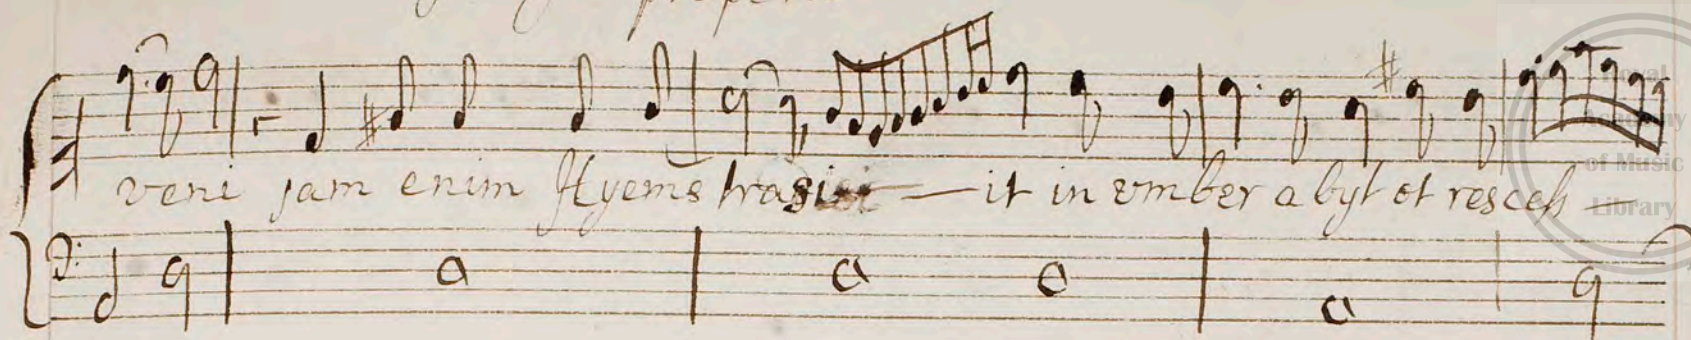 proper
veni jam enim Hyems trasi — it in ymber abyt et rescess —
Royal
Academy
of Music
Library